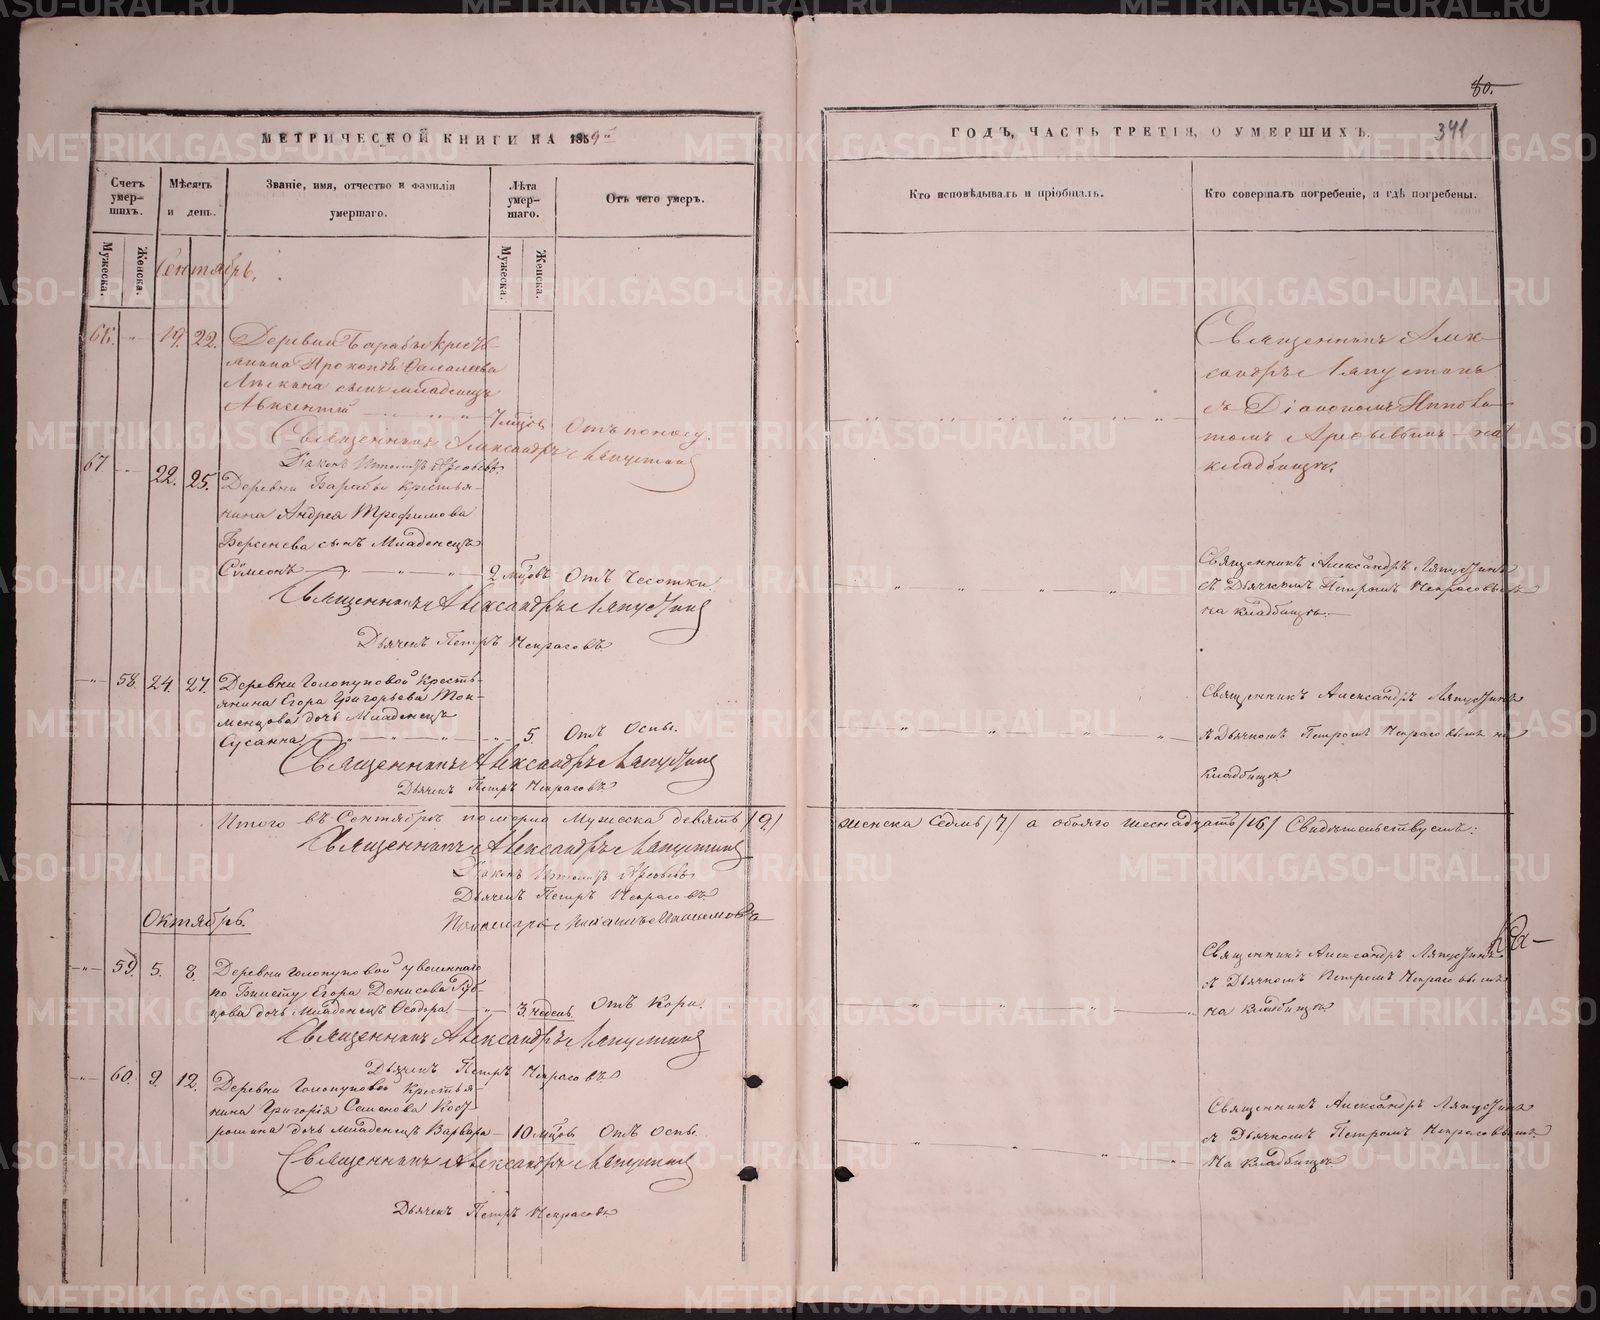 80.
341
МЕТРИЧЕСКОЙ КНИГИ НА 1859й
ГОДЪ, ЧАСТЬ ТРЕТІЯ, О УМЕРШИХЪ.
Счетъ умер-шихъ.
Мѣсяцъ и день.
Званіе, имя, отчество и фамилія умершаго.
Лѣта умер-шаго.
Отъ чего умеръ.
Кто исповѣдывалъ и пріобщалъ.
Кто совершалъ погребеніе, и гдѣ погребены.
Мужеска.
Женска.
Мужеска.
Женска.
Сентябрь.
66. 19. 22. Деревни Барабы кресть-
янина Прокопія
сынъ младенецъ
Авксентій 7 мцовъ Отъ поносу.
Священникъ Александръ Ляпустинъ
Священникъ Алек-
сандръ Ляпустинъ
съ Діакономъ Иппoли-
томъ Арефьевымъ на
кладбищѣ.
67 22. 25. Деревни Барабы крестья-
нина Андрея Трофимова
Берсенева сынъ Младенецъ
Симеонъ 2 мцовъ Отъ Чесотки
Священникъ Александръ Ляпустинъ
Дьячекъ Петръ Некрасовъ
Священникъ Александръ Ляпустинъ
съ Дьячкомъ Петромъ Некрасовымъ
на кладбищѣ.
58. 24. 27. Деревни Голопуповой Кресть-
янина Егора Григорьева
дочь Младенецъ
Сусанна 5. Отъ Оспы.
Священникъ Александръ Ляпустинъ
Дьячекъ Петръ Некрасовъ
Священникъ Александръ Ляпустинъ
съ дьячкомъ Петромъ Некрасовымъ на
кладбищѣ
Итого въ Сентябрѣ померло Мужеска девять /9/
женска Седмь /7/ а обоего шеснадцать /16/ Свидѣтельствуемъ:
Священникъ Александръ Ляпустинъ
Дьячекъ Петръ Некрасовъ
Октябрь.
59. 5. 8. Деревни Голопуповой уволеннаго
по Билету Егора Денисова
дочь Младенецъ Ѳеодора 3. недель Отъ Кори.
Священникъ Александръ Ляпустинъ
Дьячекъ Петръ Некрасовъ
Священникъ Александръ Ляпустинъ
съ Дьячкомъ Петромъ Некрасовымъ
на кладбищѣ
60. 9. 12. Деревни Голопуповой Крестья-
нина Григорія Семенова
дочь младенецъ Варвара 10 мцовъ Отъ оспы.
Священникъ Александръ Ляпустинъ
Дьячекъ Петръ Некрасовъ
Священникъ Александръ Ляпустинъ
съ Дьячкомъ Петромъ Некрасовымъ
На кладбищѣ
METRIKI.GASO-URAL.RU